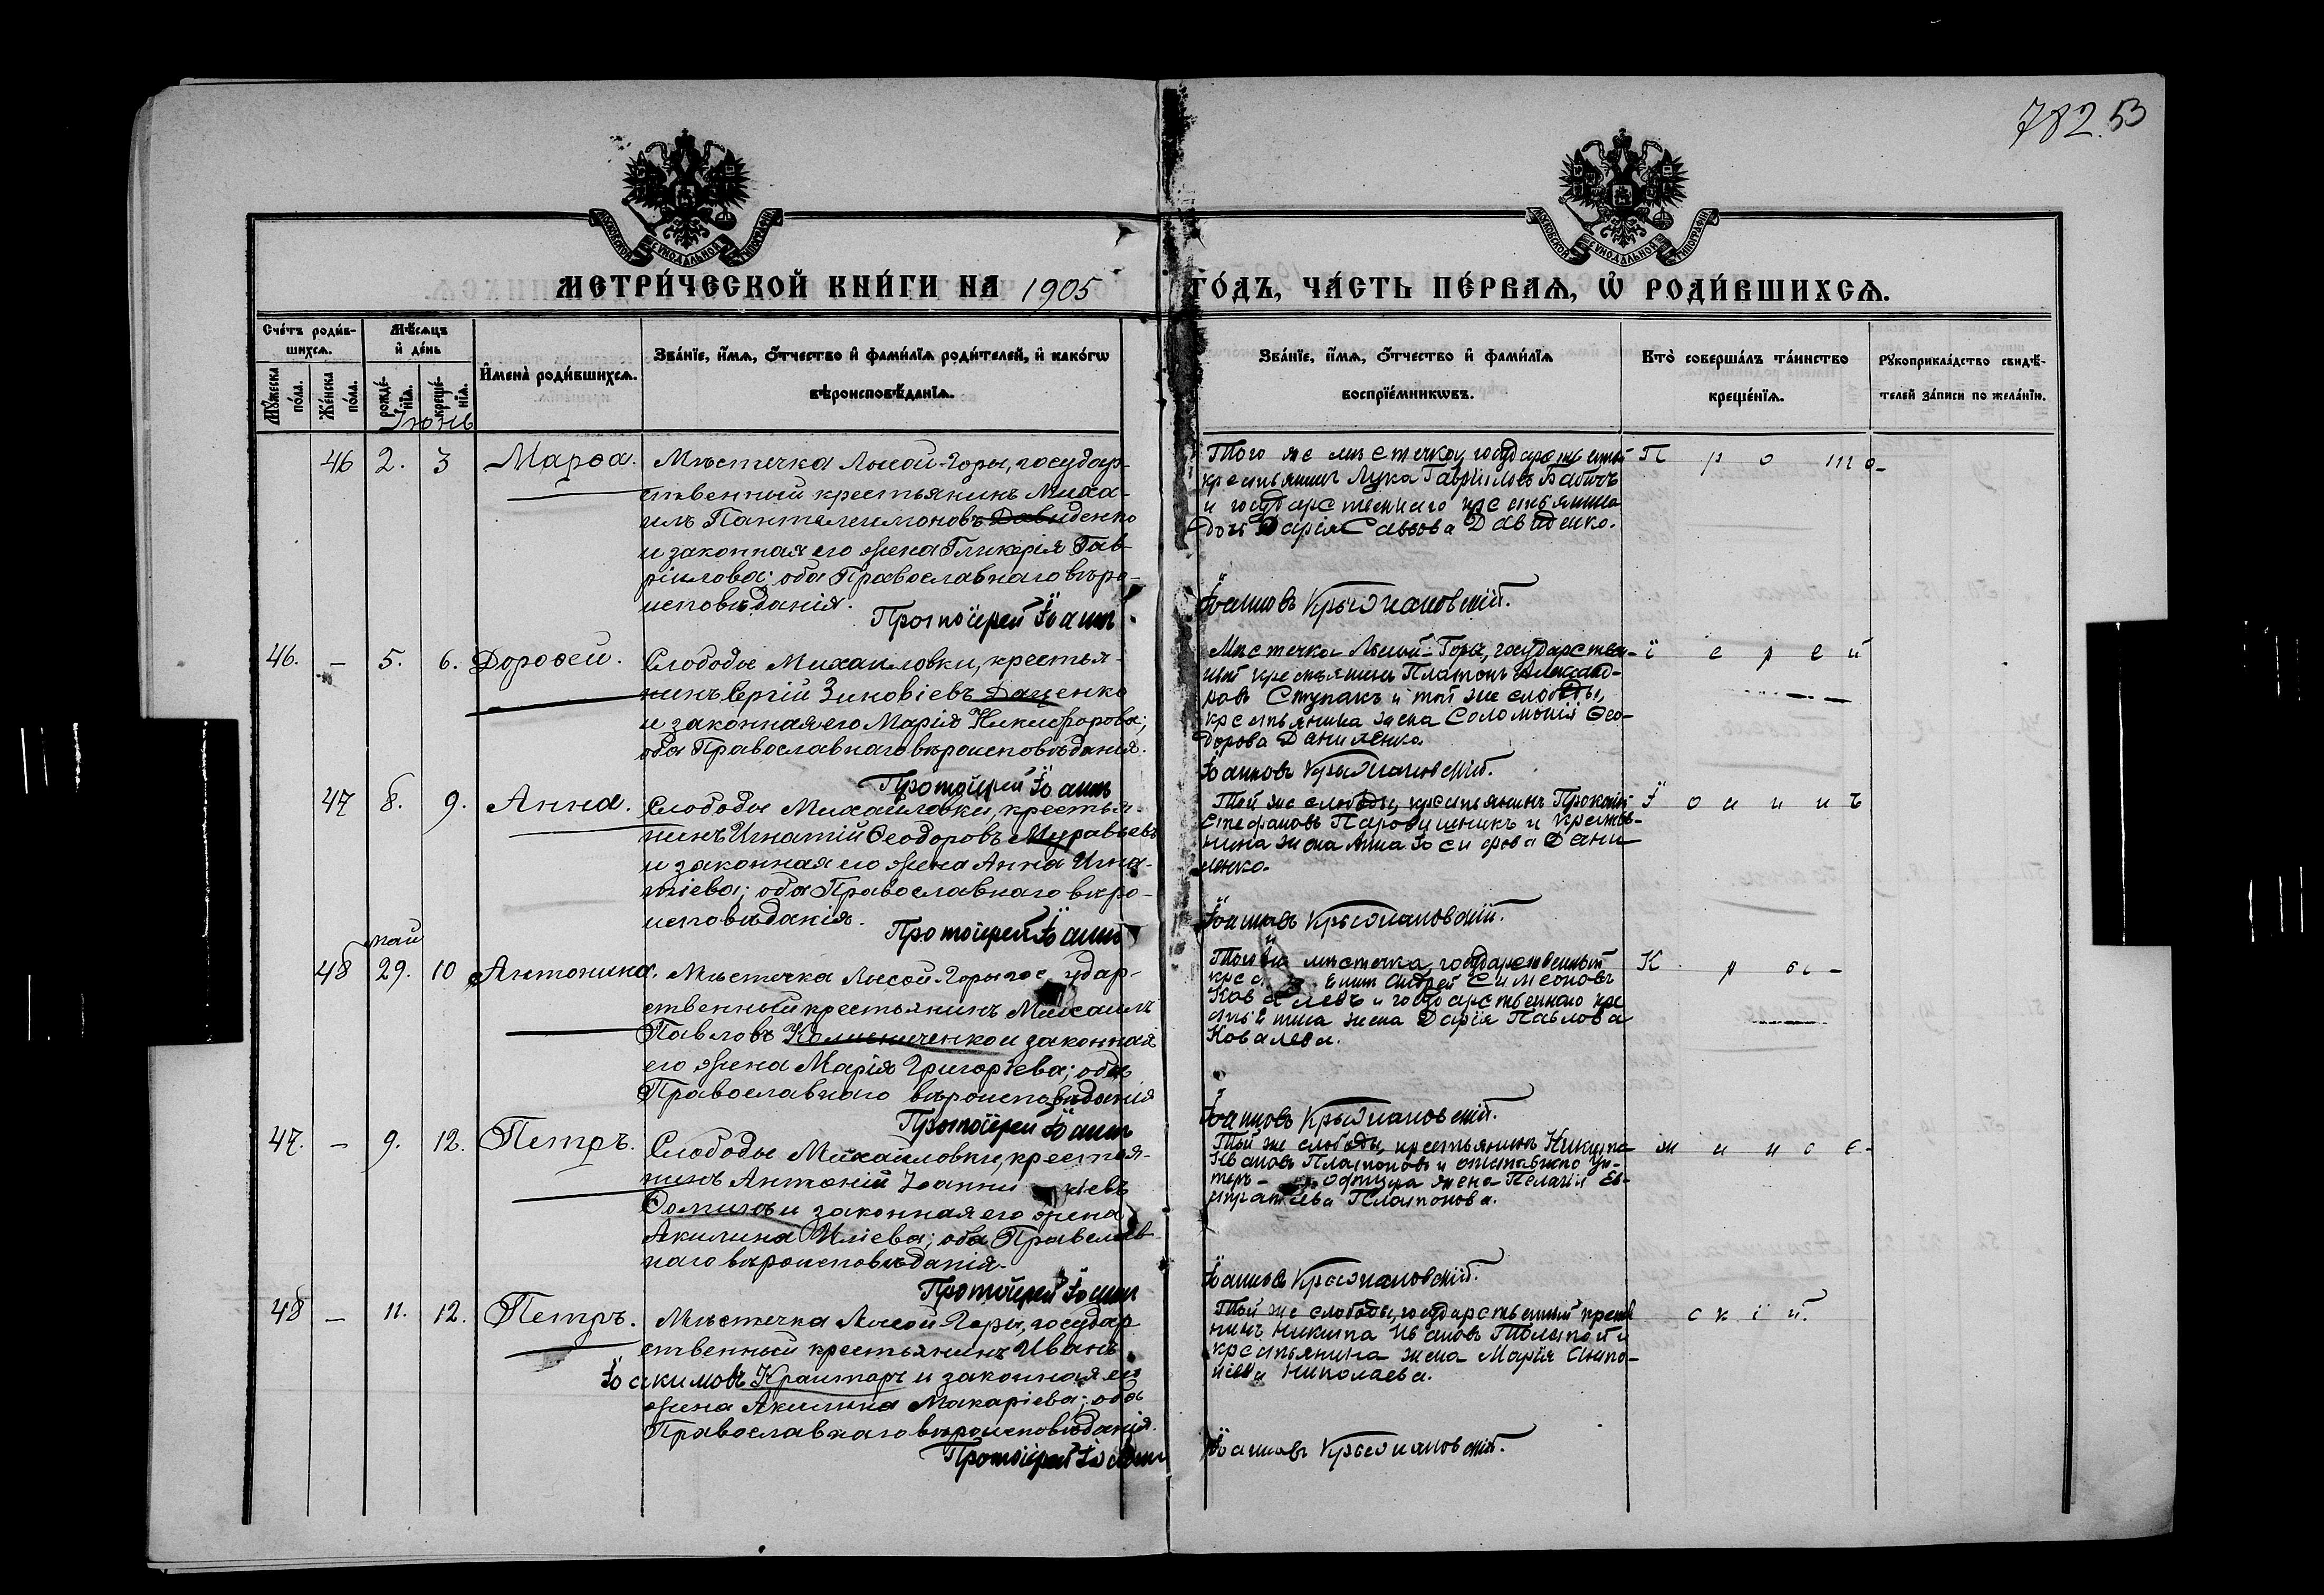 782. 53
МОСКОВСКОЙ СѴНОДАЛЬНОЙ ТИПОГРАФІИ
МОСКОВСКОЙ СѴНОДАЛЬНОЙ ТИПОГРАФІИ
МЕТРИ́ЧЕСКОЙ КНИ́ГИ НА 1905 ГО́ДЪ, ЧА́СТЬ ПЕ́РВАѦ, Ѡ҆ РОДИ́ВШИХСѦ.
Сче́тъ роди́в-
шихсѧ.
Мꙋ́жеска по́ла.
Же́нска по́ла.
Мѣ́сѧцъ
и҆ де́нь
рожде́-
нїѧ.
креще́-
нїѧ.
И҆мена̀ роди́вшихсѧ.
Зва́нїе, и҆́мѧ, ѻ҆́тчество и҆ фами́лїѧ роди́телей, и҆ како́гѡ
вѣроисповѣ́данїѧ.
Зва́нїе, и҆́мѧ, ѻ҆́тчество и҆ фами́лїѧ
воспрїе́мникѡвъ.
Кто̀ соверша́лъ та́инство
креще́нїѧ.
Рꙋкоприкла́дство свидѣ́-
телей за́писи по жела́нїю.
Іюнь
46 2. 3 Марѳа.
Мѣстечка Лысой-Горы, государ-
ственный крестьянинъ Миха-
илъ Пантелеимоновъ Давиденко
и законная его жена Гликерія Гав-
ріилова; оба Православнаго вѣро-
исповѣданія.
Протоіерей Іоаннъ
Того же мѣстечка, государственный
крестьянинъ Лука Гавріиловъ Бабичъ
и государственнаго крестьянина
дочь Дарія Саввова Давиденко.
Іоанновъ Крыжановскій.
Про то-
46. – 5. 6. Дороѳей.
Слободы Михаиловки, крестья-
нинъ Сергій Зиновіевъ Даценко
и законная его Марія Никифорова;
оба Православнаго вѣроисповѣданія.
Протоіерей Іоаннъ
Мѣстечка Лысой-Горы, государствен-
ный крестьянинъ Платонъ Александ-
ровъ Ступакъ и той же слободы,
крестьянина жена Соломонія Ѳео-
дорова Даниленко.
Іоанновъ Крыжановскій.
іерей
47 8. 9. Анна.
Слободы Михайловки, крестья-
нинъ Игнатій Ѳеодоровъ Муравьевъ
и законная его жена Анна Игна-
тіева; оба Православнаго вѣро-
исповѣданія.
Протоіерей Іоаннъ
Той же слободы, крестьянинъ Прокопій
Стефановъ и крестья-
нина жена Анна Іосифова Дани-
ленко.
Іоанновъ Крыжановскій.
Іоаннъ
май
48 29. 10 Антонина.
Мѣстечка Лысой-Горы государ-
ственный крестьянинъ Михаилъ
Павловъ и законная
его жена Марія Григоріева; оба
Православнаго вѣроисповѣданія
Протоіерей Іоаннъ
Того же мѣстечка, государственный
Андрей Симеоновъ
Ковалевъ и государственнаго кре
стьянина жена Дарія Павлова
Ковалева.
Іоанновъ Крыжановскій.
Кры-
47. – 9. 12. Петръ.
Слободы Михайловки, крестья-
нинъ Антоній
Ѳоминъ и законная его жена
Акилина Иліева; оба Православ-
наго вѣроисповѣданія.
Протоіерей Іоаннъ
Той же слободы, крестьянинъ Никита
Ивановъ Платоновъ и отставного Ун-
теръ-офицера жена Пелагія Ев-
стратіева Платонова.
Іоанновъ Крыжановскій.
жанов-
48 – 11. 12. Петръ.
Мѣстечка Лысой Горы, государ
ственный крестьянинъ Иванъ
Іоакимовъ Крамаръ и законная его
жена Акилина Макаріева; оба
Православнаго вѣроисповѣданія.
Протоіерей Іоаннъ
Той же слободы, государственный крестья
нинъ Никита Ивановъ Толстой и
крестьянина жена Марія Анто-
ніева Николаева.
Іоанновъ Крыжановскій.
скій.